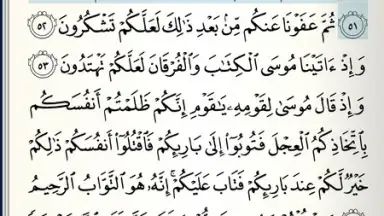 ٥١ ثُمَّ عَفَوْنَا عَنكُم مِّنۢ بَعْدِ ذَٰلِكَ لَعَلَّكُمْ تَشْكُرُونَ ٥٢
وَإِذْ ءَاتَيْنَا مُوسَى ٱلْكِتَٰبَ وَٱلْفُرْقَانَ لَعَلَّكُمْ تَهْتَدُونَ ٥٣
وَإِذْ قَالَ مُوسَىٰ لِقَوْمِهِۦ يَٰقَوْمِ إِنَّكُمْ ظَلَمْتُمْ أَنفُسَكُم
بِٱتِّخَاذِكُمُ ٱلْعِجْلَ فَتُوبُوٓا۟ إِلَىٰ بَارِئِكُمْ فَٱقْتُلُوٓا۟ أَنفُسَكُمْ ذَٰلِكُمْ
خَيْرٌ لَّكُمْ عِندَ بَارِئِكُمْ فَتَابَ عَلَيْكُمْ ۚ إِنَّهُۥ هُوَ ٱلتَّوَّابُ ٱلرَّحِيمُ